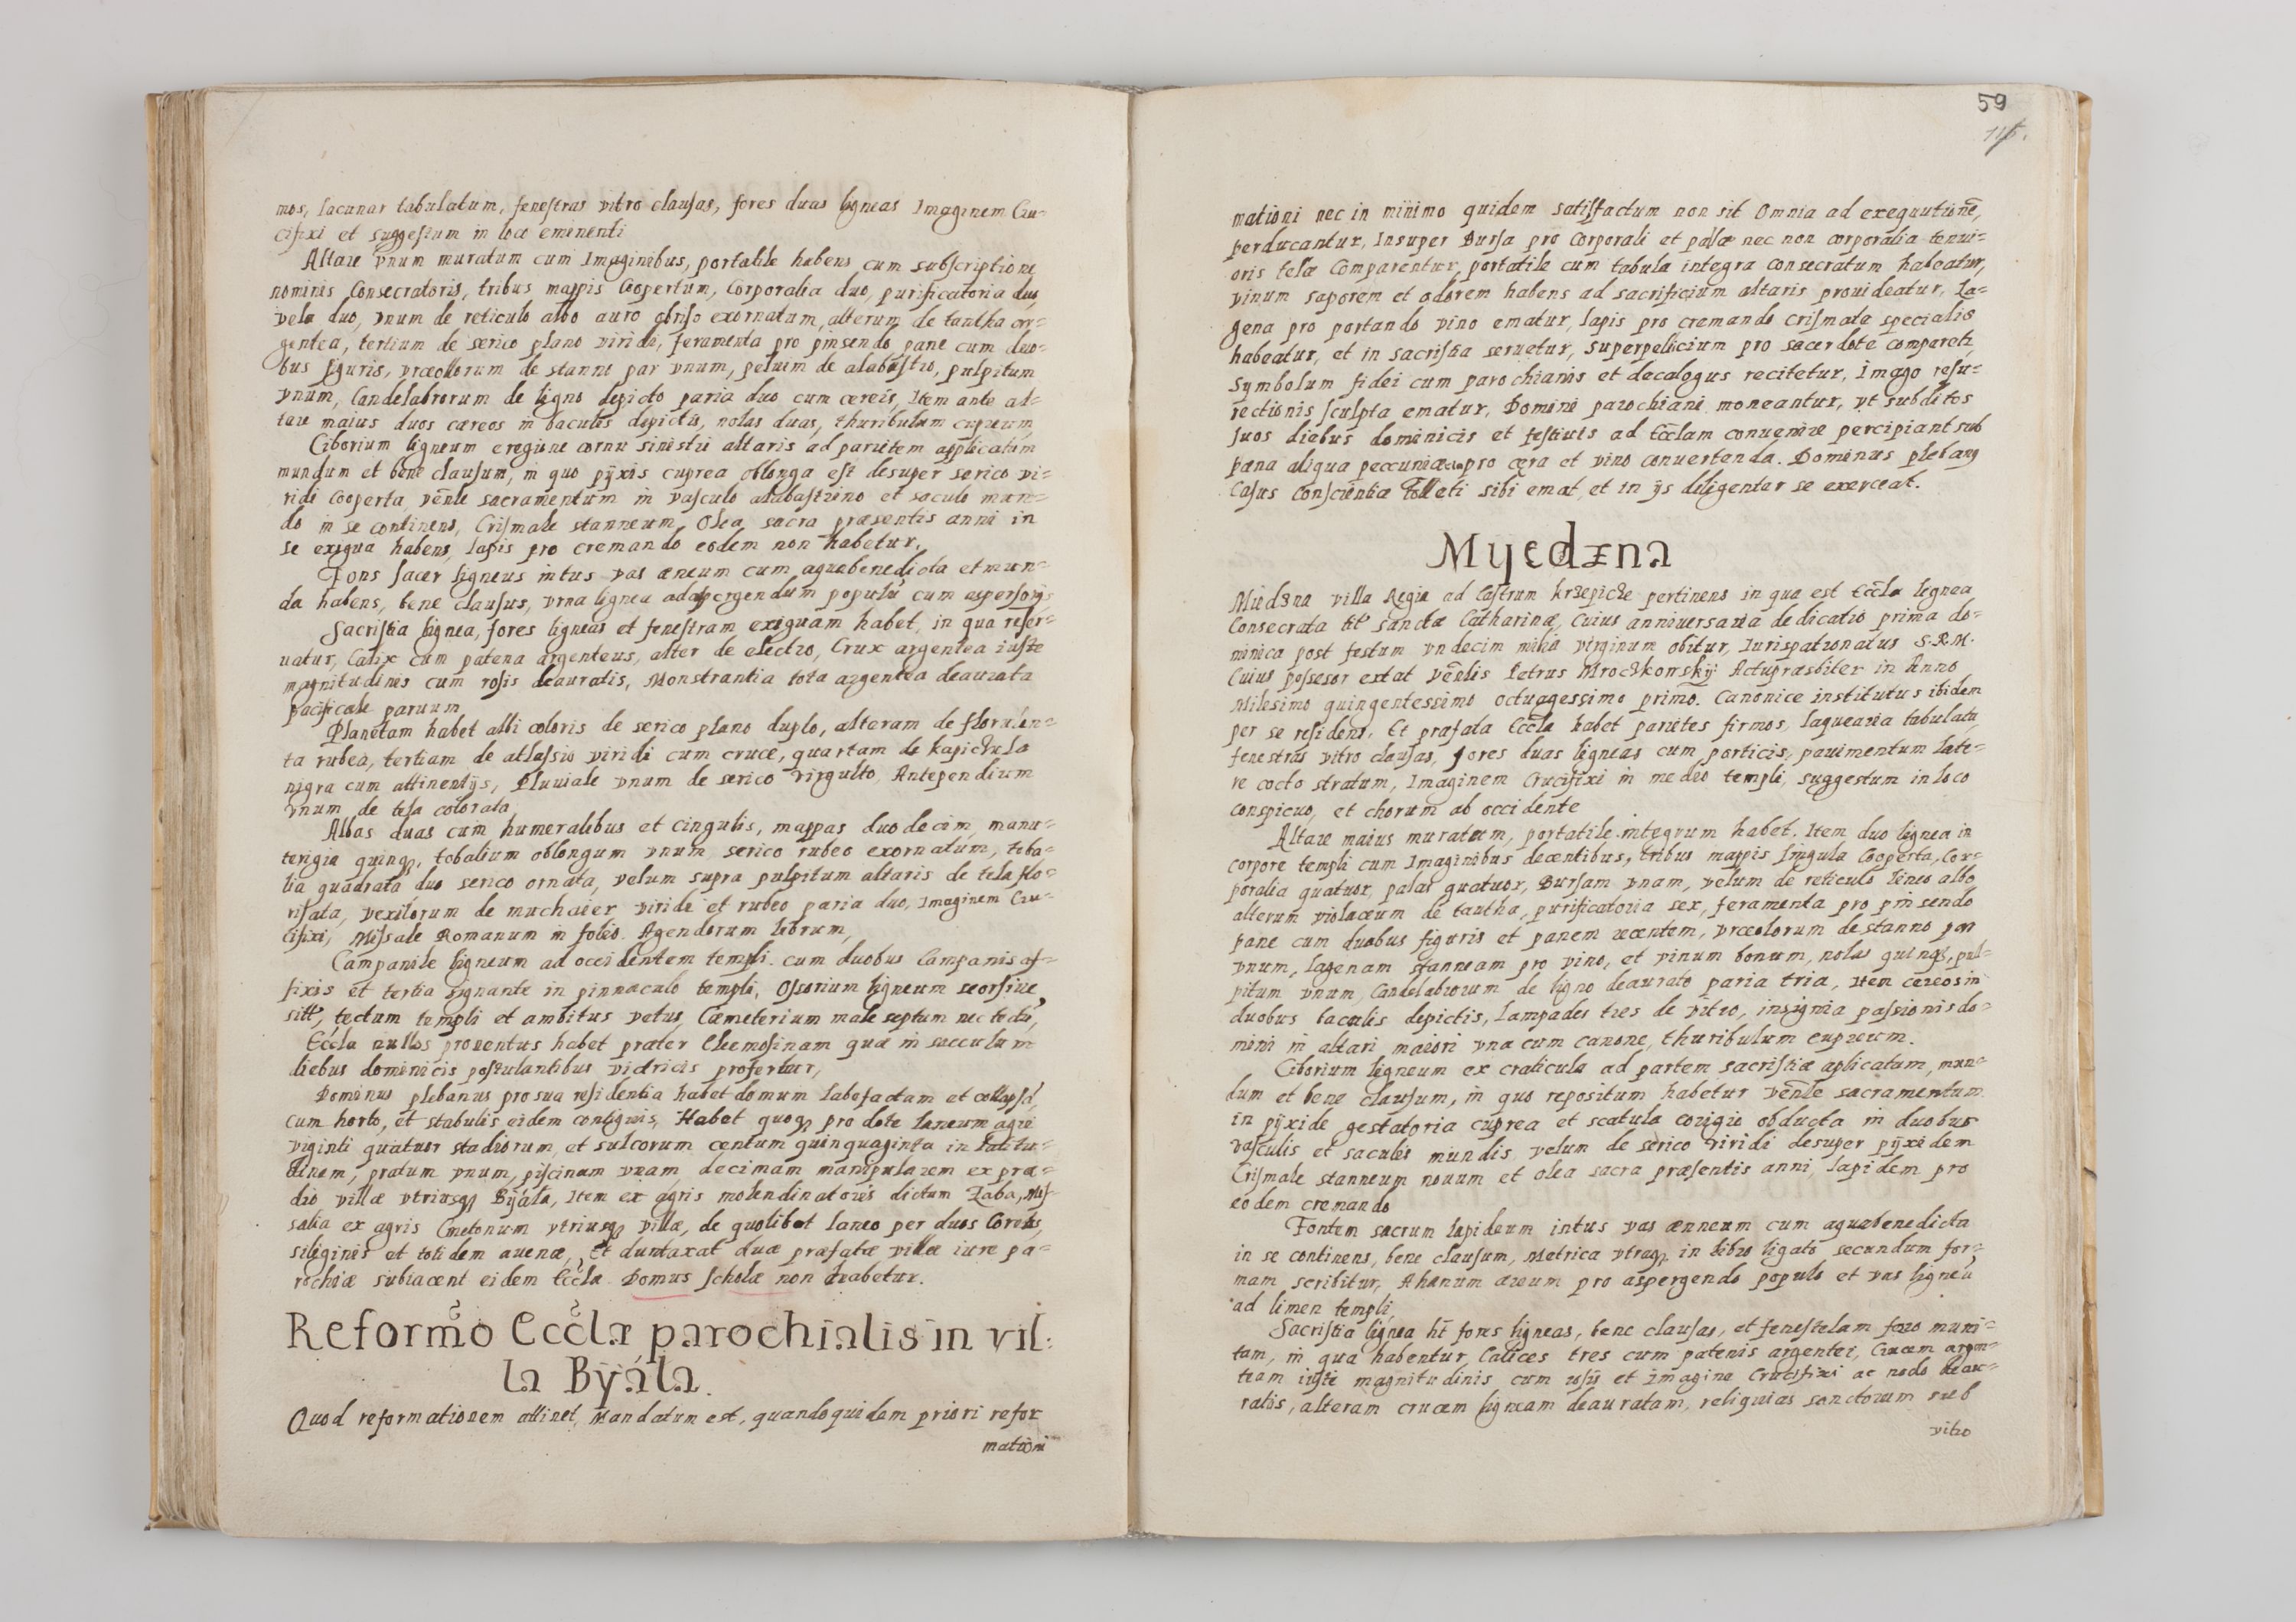 mos, lacunar tabulatum, fenestras vitro clausas, fores duas ligneas Imaginem Cru-
cifixi et suggestum in loco eminenti
Altare vnum muratum cum Imaginibus, portatile habens cum subscriptione
nominis Consecratoris, tribus mappis Coopertum, Corporalia duo, purificatoria duo
vela duo, vnum de reticulo albo auro exornatum, alterum de tantha ar-
gentea, tertium de serico plano viride, feramenta pro pinsendo pane cum duo-
bus figuris, vrceollorum de stanno par vnum, peluim de alabastro, pulpitum
vnum, Candelabrorum de ligno depicto paria duo cum cereis, Item ante al-
tare maius duos cæreos in baculis depictis, nolas duas, thuribulum cupreum,
Ciborium ligneum eregione cornu sinistri altaris ad parietem applicatum
mundum et bene clausum, in quo pÿxis cuprea oblonga est desuper serico vi-
ridi cooperta, vēnle sacramentum in vasculo alabastrino et saculo mun-
do in se continens, Crismale stanneum, Olea sacra præsentis anni in
se exigua habens, lapis pro cremando eodem non habetur.
Fons sacer ligneus intus vas æneum cum aquabenedicta et mun-
da habens, bene clausus, vrna lignea ad aspergendum populū cum aspersorijs
Sacristia lignea, fores ligneas et fenestram exiguam habet, in qua reser-
uatur, Calix cum patena argenteus, alter de electro, Crux argentea iustæ
magnitudinis cum rosis deauratis, Monstrantia tota argentea deaurata
pacificale paruum
Planetam habet albi coloris de serico plano duplo, alteram de florulen-
ta rubea, tertiam de atlassio viridi cum cruce, quartam de kapichula
nigra cum attinentijs, Pluuiale vnum de serico virgulto, Antependium
vnum de tela colorata
Albas duas cum humeralibus et cingulis, mappas duodecim, manu-
terigia quinqꝫ, tobalium oblongum vnum serico rubeo exornatum, toba-
lia quadrata duo serico ornata, velum supra pulpitum altaris de tela flo-
risata, vexilorum de muchaier viride et rubeo paria duo, Imaginem Cru-
cifixi, Missale Romanum in folio. Agendorum librum,
Campanile ligneum ad occidentem templi cum duobus Campanis af-
fixis et tertia signante in pinnaculo templi, Ossorium ligneum seorsiue
sitū, tectum templi et ambitus vetus, Cæmeterium male septum nec tectū,
Eccla nullos prouentus habet præter Eleemosinam quæ in sacculum
diebus dominicis postulantibus victricis profertur,
Dominus plebanus pro sua residentia habet domum labefactam et collapsā,
cum horto, et stabulis eidem contiguis, Habet quoqꝫ pro dote laneum agri
viginti quatuor stadiorum et sulcorum centum quinquaginta in latitu-
dinem, pratum vnum, piscinam vnam, decimam manipularem ex præ-
dio villæ vtriusqꝫ Bÿála, Item ex agris molendinatoris dictum Zaba, Mis-
salia ex agris Cmetonum vtriusqꝫ villæ, de quolibet laneo per duos Coretos,
siliginis et totidem auenæ, Et duntaxat duæ præfatæ villæ iure pa-
rochiæ subiacent eidem Eccla. Domus scholæ non habetur.
Reformō Ecclæ parochialis in vil:
la Byála.
Quod reformationem attinet, Mandatum est, quandoquidem priori refor
mationi
59
mationi nec in minimo quidem satisfactum non sit Omnia ad exequutionē,
perducantur, Insuper Bursa pro Corporali et palæ nec non corporalia tenui-
oris telæ Comparentur, portatile cum tabula integra consecratum habeatur,
vinum saporem et odorem habens ad sacrificium altaris prouideatur, La-
gena pro portando vino ematur, lapis pro cremando crismate specialis
habeatur, et in sacristia seruetur, superpellicium pro sacerdote comparetr,
Symbolum fidei cum parochianis et decalogus recitetur, Imago resu-
rectionis sculpta ematur, Domini parochiani moneantur, vt subditos
suos diebus dominicis et festiuis ad Ecclam conuenire percipiant sub
pæna aliqua peccuniaria pro cera et vino conuertenda. Dominus plebans
Casus Consciēntiæ Tolleti sibi emat, et in ijs diligenter se exerceat.
Myedzna
Miedzna villa Regia ad Castrum krzepicze pertinens in qua est Eccla lignea
Consecrata titt sanctæ Catharinæ, Cuius anniuersaria dedicatio prima do-
minica post festum vndecim milia virginum obitur, Iurispatronatus S.R.M.
Cuius possesor extat vēnlis Petrus Mroczkowskij Actupræsbiter in Anno
Milesimo quingentessimo octuagessimo primo. Canonice institutus ibidem
per se residens, Et præfata Eccla habet parietes firmos, laquearia tabulata,
fenestras vitro clausas, fores duas ligneas cum porticis, pauimentum late-
re cocto stratum, Imaginem Crucifixi in medio templi, suggestum in loco
conspicuo, et chorum ab occidente
Altare maius muratum, portatile integrum habet. Item duo lignea in
corpore templi cum Imaginibus decentibus, tribus mappis singula Cooperta, Cor-
poralia quatuor, palas quatuor, Bursam vnam, velum de reticulo lineo albo
alterum violaceum de tantha, purificatoria sex, feramenta pro pinsendo
pane cum duobus figuris et panem recentem, vrceolorum de stanno par
vnum, lagenam stanneam pro vino, et vinum bonum, nolas quinqꝫ, pul-
pitum vnum, Candelabrorum de ligno deaurato paria tria, Item cereos in
duobus baculis depictis, Lampades tres de vitro, insignia passionis do-
mini in altari maiori vna cum canone, thuribulum cupreum.
Ciborium ligneum ex craticula ad partem sacristiæ aplicatum, mun-
dum et bene clausum, in quo repositum habetur vēnle sacramentum
in pÿxide gestatoria cuprea et scatula corigio obducta in duobus
vasculis et saculis mundis, velum de serico viridi desuper pÿxidem
Crismale stanneum nouum et olea sacra præsentis anni, lapidem pro
eodem cremando
Fontem sacrum lapideum intus vas ænneum cum aquabenedicta
in se continens, bene clausum, Metrica vtraqꝫ in libro ligato secundum for-
mam scribitur, Ahenum æreum pro aspergendo populo et vas ligneū
ad limen templi
Sacristia lignea ht fores ligneas, bene clausas, et fenestelam fero muni-
tam, in qua habentur Calices tres cum patenis argentei, Crucem argen-
team iustæ magnitudinis cum rosis et imagine Crucifixi ac nodo deau-
ratis, alteram crucem ligneam deauratam, reliquias sanctorum sub
vitro